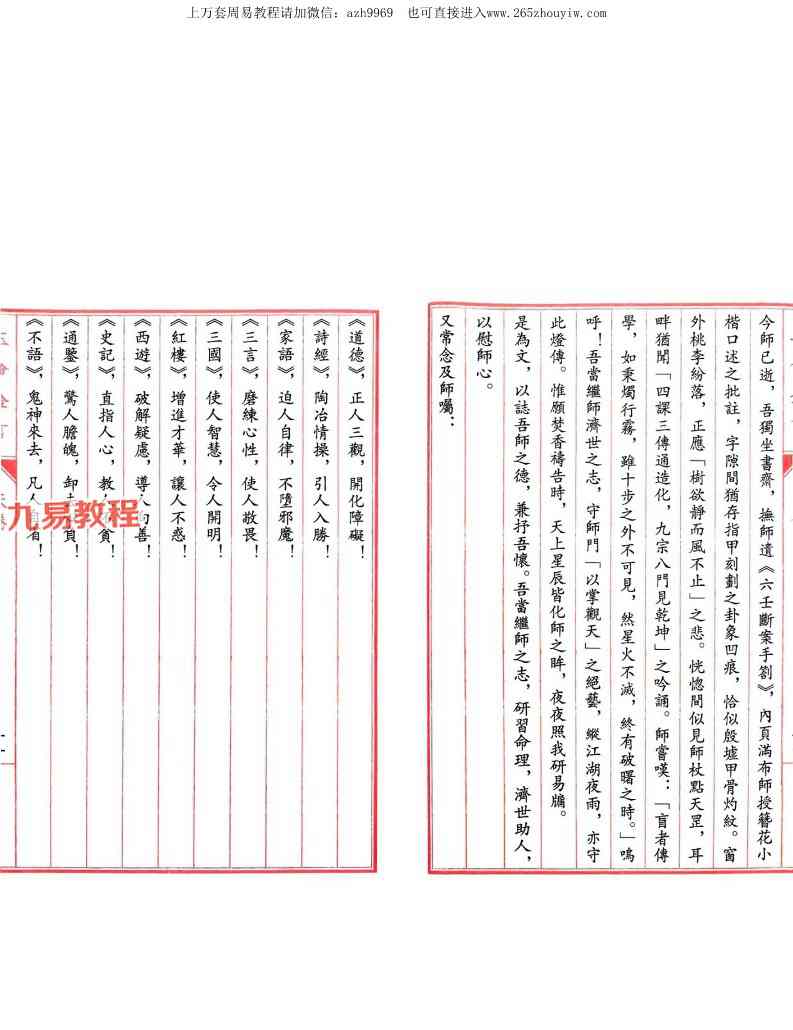 上万套周易教程请加微信：azh9969　也可直接进入www.265zhouyiw.com
今師已逝，吾獨坐書齋，撫師遺《六壬斷案手劄》，內頁滿布師授簪花小
楷口述之批註，字隙間猶存指甲刻劃之卦象凹痕，恰似殷墟甲骨灼紋。窗
外桃李紛落，正應「樹欲靜而風不止」之悲。恍惚間似見師杖點天罡，耳
畔猶聞「四課三傳通造化，九宗八門見乾坤」之吟誦。師嘗嘆：「盲者傳
學，如秉燭行霧，雖十步之外不可見，然星火不滅，終有破曙之時。」嗚
呼！吾當繼師濟世之志，守師門「以掌觀天」之絕藝，縱江湖夜雨，亦守
此燈傳。惟願焚香禱告時，天上星辰皆化師之眸，夜夜照我研易牖。
是為文，以誌吾師之德，兼抒吾懷。吾當繼師之志，研習命理，濟世助人，
以慰師心。
又常念及師囑：
《道德》，正人三觀，開化障礙！
《詩經》，陶冶情操，引人入勝！
《家語》，迫人自律，不墮邪魔！
《三言》，磨練心性，使人敬畏！
《三國》，使人智慧，令人開明！
《紅樓》，增進才華，讓人不惑！
《西遊》，破解疑慮，導人向善！
《史記》，直指人心，教人貪！
《通鑒》，驚人膽魄，卸負！
《不語》，鬼神來去，凡人自省！
九易教程